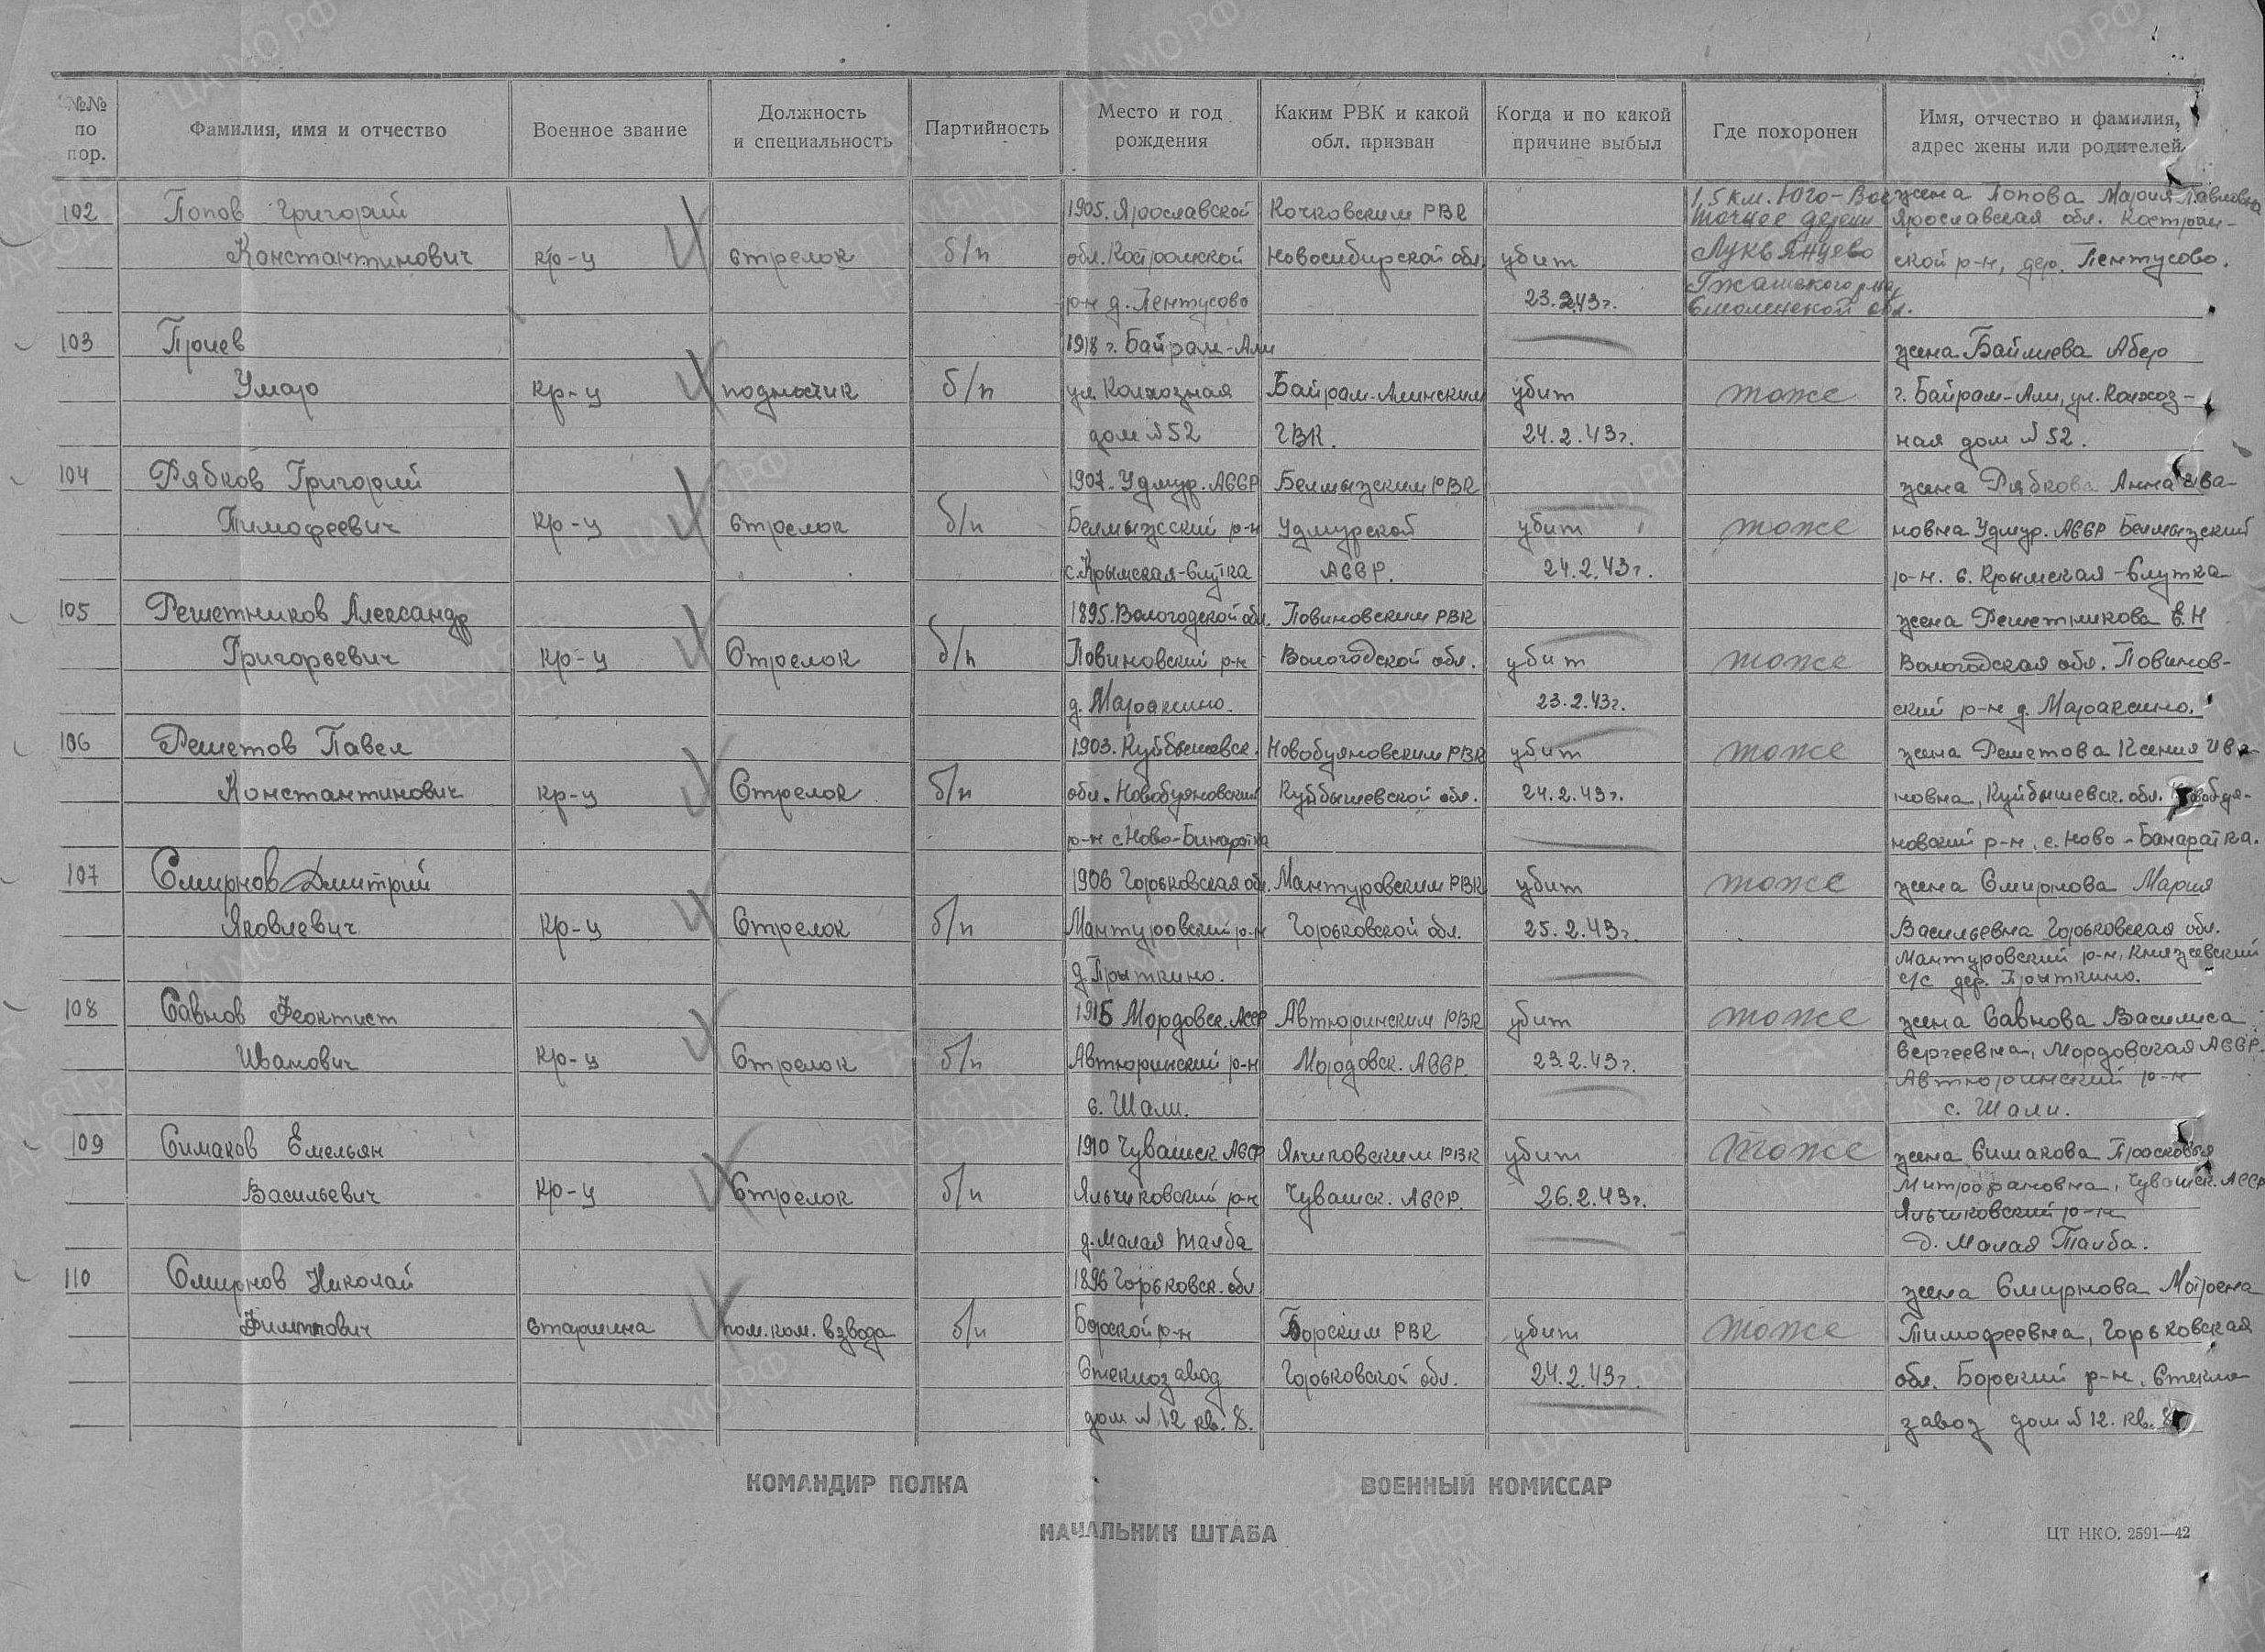 №№ по пор.
Фамилия, имя и отчество
Военное звание
Должность и специальность
Партийность
Место и год рождения
Каким РВК и какой обл. призван
Когда и по какой причине выбыл
Где похоронен
Имя, отчество и фамилия, адрес жены или родителей
102 Попов Григорий 1905. Ярославской Кочковским РВК 1,5 км. Юго-Вос жена Попова Мария Павловна
точнее дерев Ярославская обл. Костром-
Константинович кр-ц стрелок б/п обл. Костромской Новосибирской обл. убит Лукьянцево ской р-н, дер. Пентусово.
р-н д. Пентусово 23.2.43г. Гжатского р-на
Смоленской обл.
103 Приев 1918 г. Байрам-Али жена Байлиева Абер
Умар кр-ц подносчик б/п ул. Колхозная Байрам-Алинским убит тоже г. Байрам-Али, ул. Колхоз-
дом №52 ГВК. 24.2.43г. ная дом №52.
104 Рябков Григорий 1907. Удмур. АССР Белмызским РВК жена Рябкова Анна Ива-
Тимофеевич кр-ц стрелок б/п Белмызсский р-н Удмурской убит тоже новна Удмур. АССР Белмызский
с. Крымская-Слутка АССР. 24.2.43г. р-н. с. Крымская-Слутка
105 Решетников Александр 1895. Вологодской обл. Повиновским РВК жена Решетникова Е.Н
Григорьевич кр-ц Стрелок б/п Повиновский р-н Вологодской обл. убит тоже Вологодская обл. Повинов-
д. Мараксино. 23.2.43г. ский р-н д. Мараксино.
106 Решетов Павел 1903. Куйбышевск. Новобуяновским РВК убит тоже жена Решетова Ксения Ива-
Константинович кр-ц Стрелок б/п обл. Новобуяновский Куйбышевской обл. 24.2.43г. новна, Куйбышевск. обл. Новобуя-
р-н с. Ново-Бинаратка новский р-н, с. Ново-Банаратка.
107 Смирнов Дмитрий 1906 Горьковская обл. Мантуровским РВК убит тоже жена Смирнова Мария
Яковлевич кр-ц Стрелок б/п Мантуровский р-н Горьковской обл. 25.2.43г. Васильевна Горьковская обл.
Мантуровский р-н, Князевский
д. Прыткино. с/с дер. Прыткино.
108 Савнов Феоктист 1915 Мордовск. АССР Автюринским РВК убит тоже жена Савнова Василиса
Иванович кр-ц Стрелок б/п Автюринский р-н Мордовск. АССР. 23.2.43г. Сергеевна, Мордовская АССР.
Автюринский р-н
с. Шали. с. Шали.
109 Симаков Емельян 1910 Чувашск АССР Яличковским РВК убит тоже жена Симакова Просковья
Васильевич кр-ц Стрелок б/п Яльчиковский р-н Чувашск. АССР. 26.2.43г. Митрофановна, Чувашск. АССР
Яльчиковский р-н
д. Малая Талба д. Малая Талба.
110 Смирнов Николай 1896 Горьковск. обл жена Смирнова Матрена
старшина пом. ком. взвода б/п Борской р-н Борским РВК убит тоже Тимофеевна, Горьковская
Стеклозавод Горьковской обл. 24.2.43г. обл. Борский р-н. Стекло
дом №12 кв. 8. завод дом №12. кв. 8
КОМАНДИР ПОЛКА
ВОЕННЫЙ КОМИССАР
НАЧАЛЬНИК ШТАБА
ЦТ НКО. 2591—42